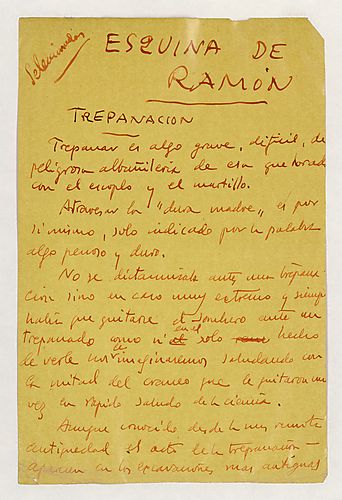 Seleccionados
ESQUINA DE
RAMÓN
TREPANACION
Trepanar es algo grave, dificil, de
peligrosa albañileria de esa que horada
con el escoplo y el martillo.
Atravesar la "dura madre" es por
si mismo, solo indicado por la palabra
algo penoso y duro.
No se dictaminaba antes una trepana-
cion sino en caso muy extremo y siempre
habia que quitarse el sombrero ante un
trepanado como si en el solo hecho
de verle nos le imaginasemos saludando con
la mitad del craneo que le quitaron una
vez en rapido saludo de la ciencia.
Aunque conocido desde la mas remota
antiguedad el acto de la trepanación —
aparecen en las excavaciones mas antiguas